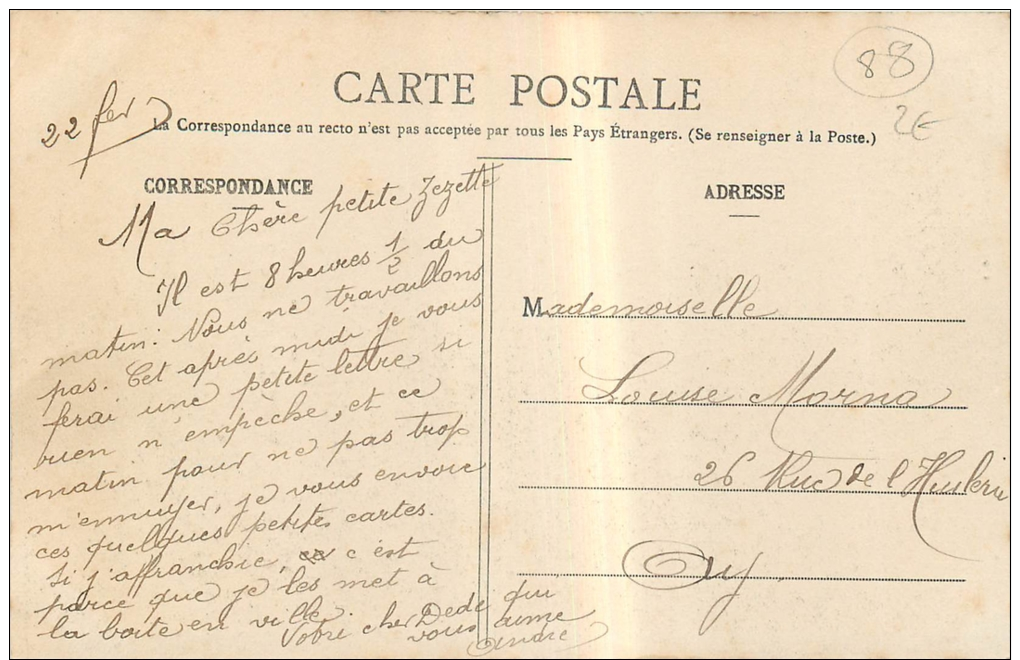 88
2€
22 fev
CARTE POSTALE
La Correspondance au recto n'est pas acceptée par tous les Pays Étrangers. (Se renseigner à la Poste.)
CORRESPONDANCE
Ma Chère petite Zezette
Il est 8 heures 1/2 du
matin. Nous ne travaillons
pas. Cet après midi je vous
ferai une petite lettre si
rien n'empèche, et ce
matin pour ne pas trop
m'ennuyer, je vous envoie
ces quelques petites cartes.
Si j'affranchie, c'est
parce que je les met à
la boite en ville.
Votre cher Dede qui
vous aime
André
ADRESSE
Mademoiselle
Louise Morna
26 Rue de l'Huilerie